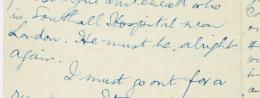 Whitehall who
is, Southall Hospital near
London. He must be, alright
again.
I must go out for a